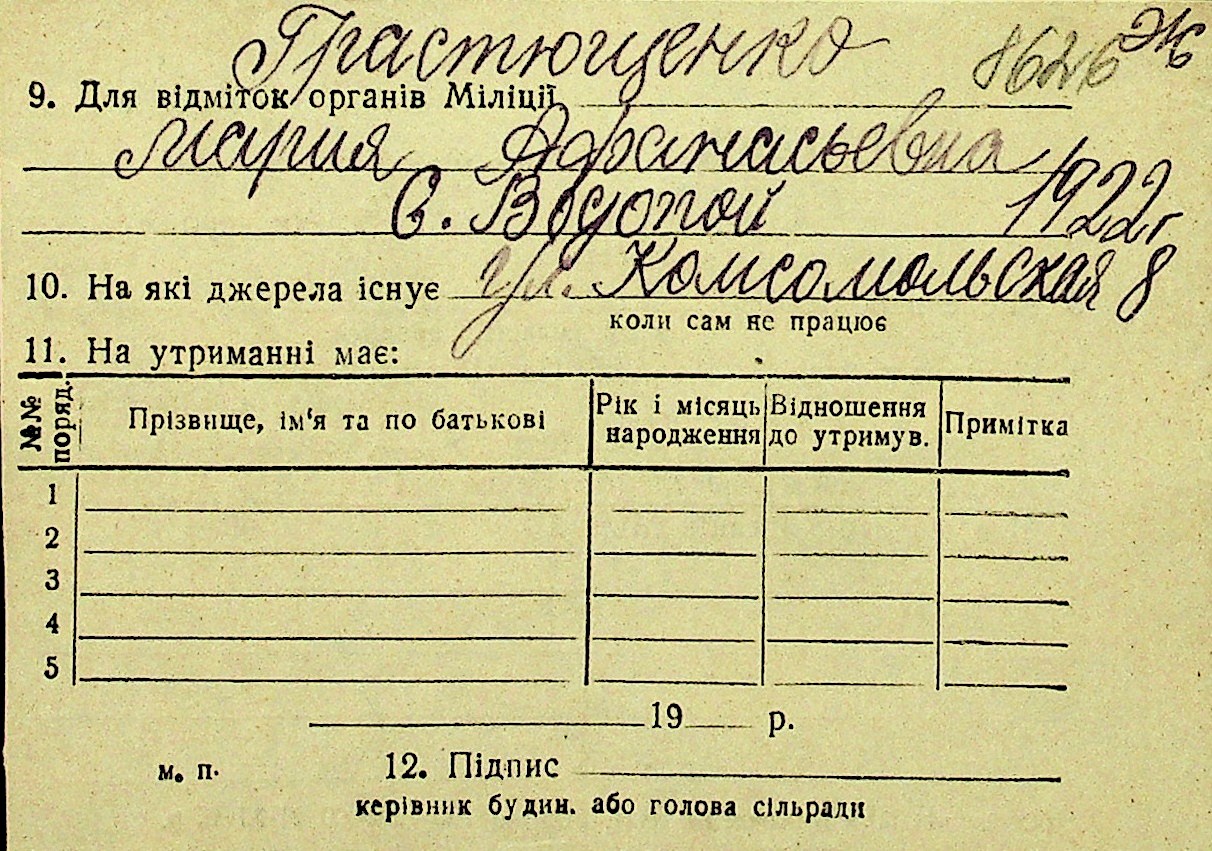 Грастющенко 8626 Эж
9. Для відміток органів Міліції
Мария Афанасьевна
С. Водопой 1922г
10. На які джерела існує ул. Комсомольская 8
коли сам не працює
11. На утриманні має:
№№ поряд. Прізвище, ім‘я та по батькові Рік і місяць народження Відношення до утримув. Примітка
1
2
3
4
5
19 р.
м. п. 12. Підпис
керівник будин. або голова сільради